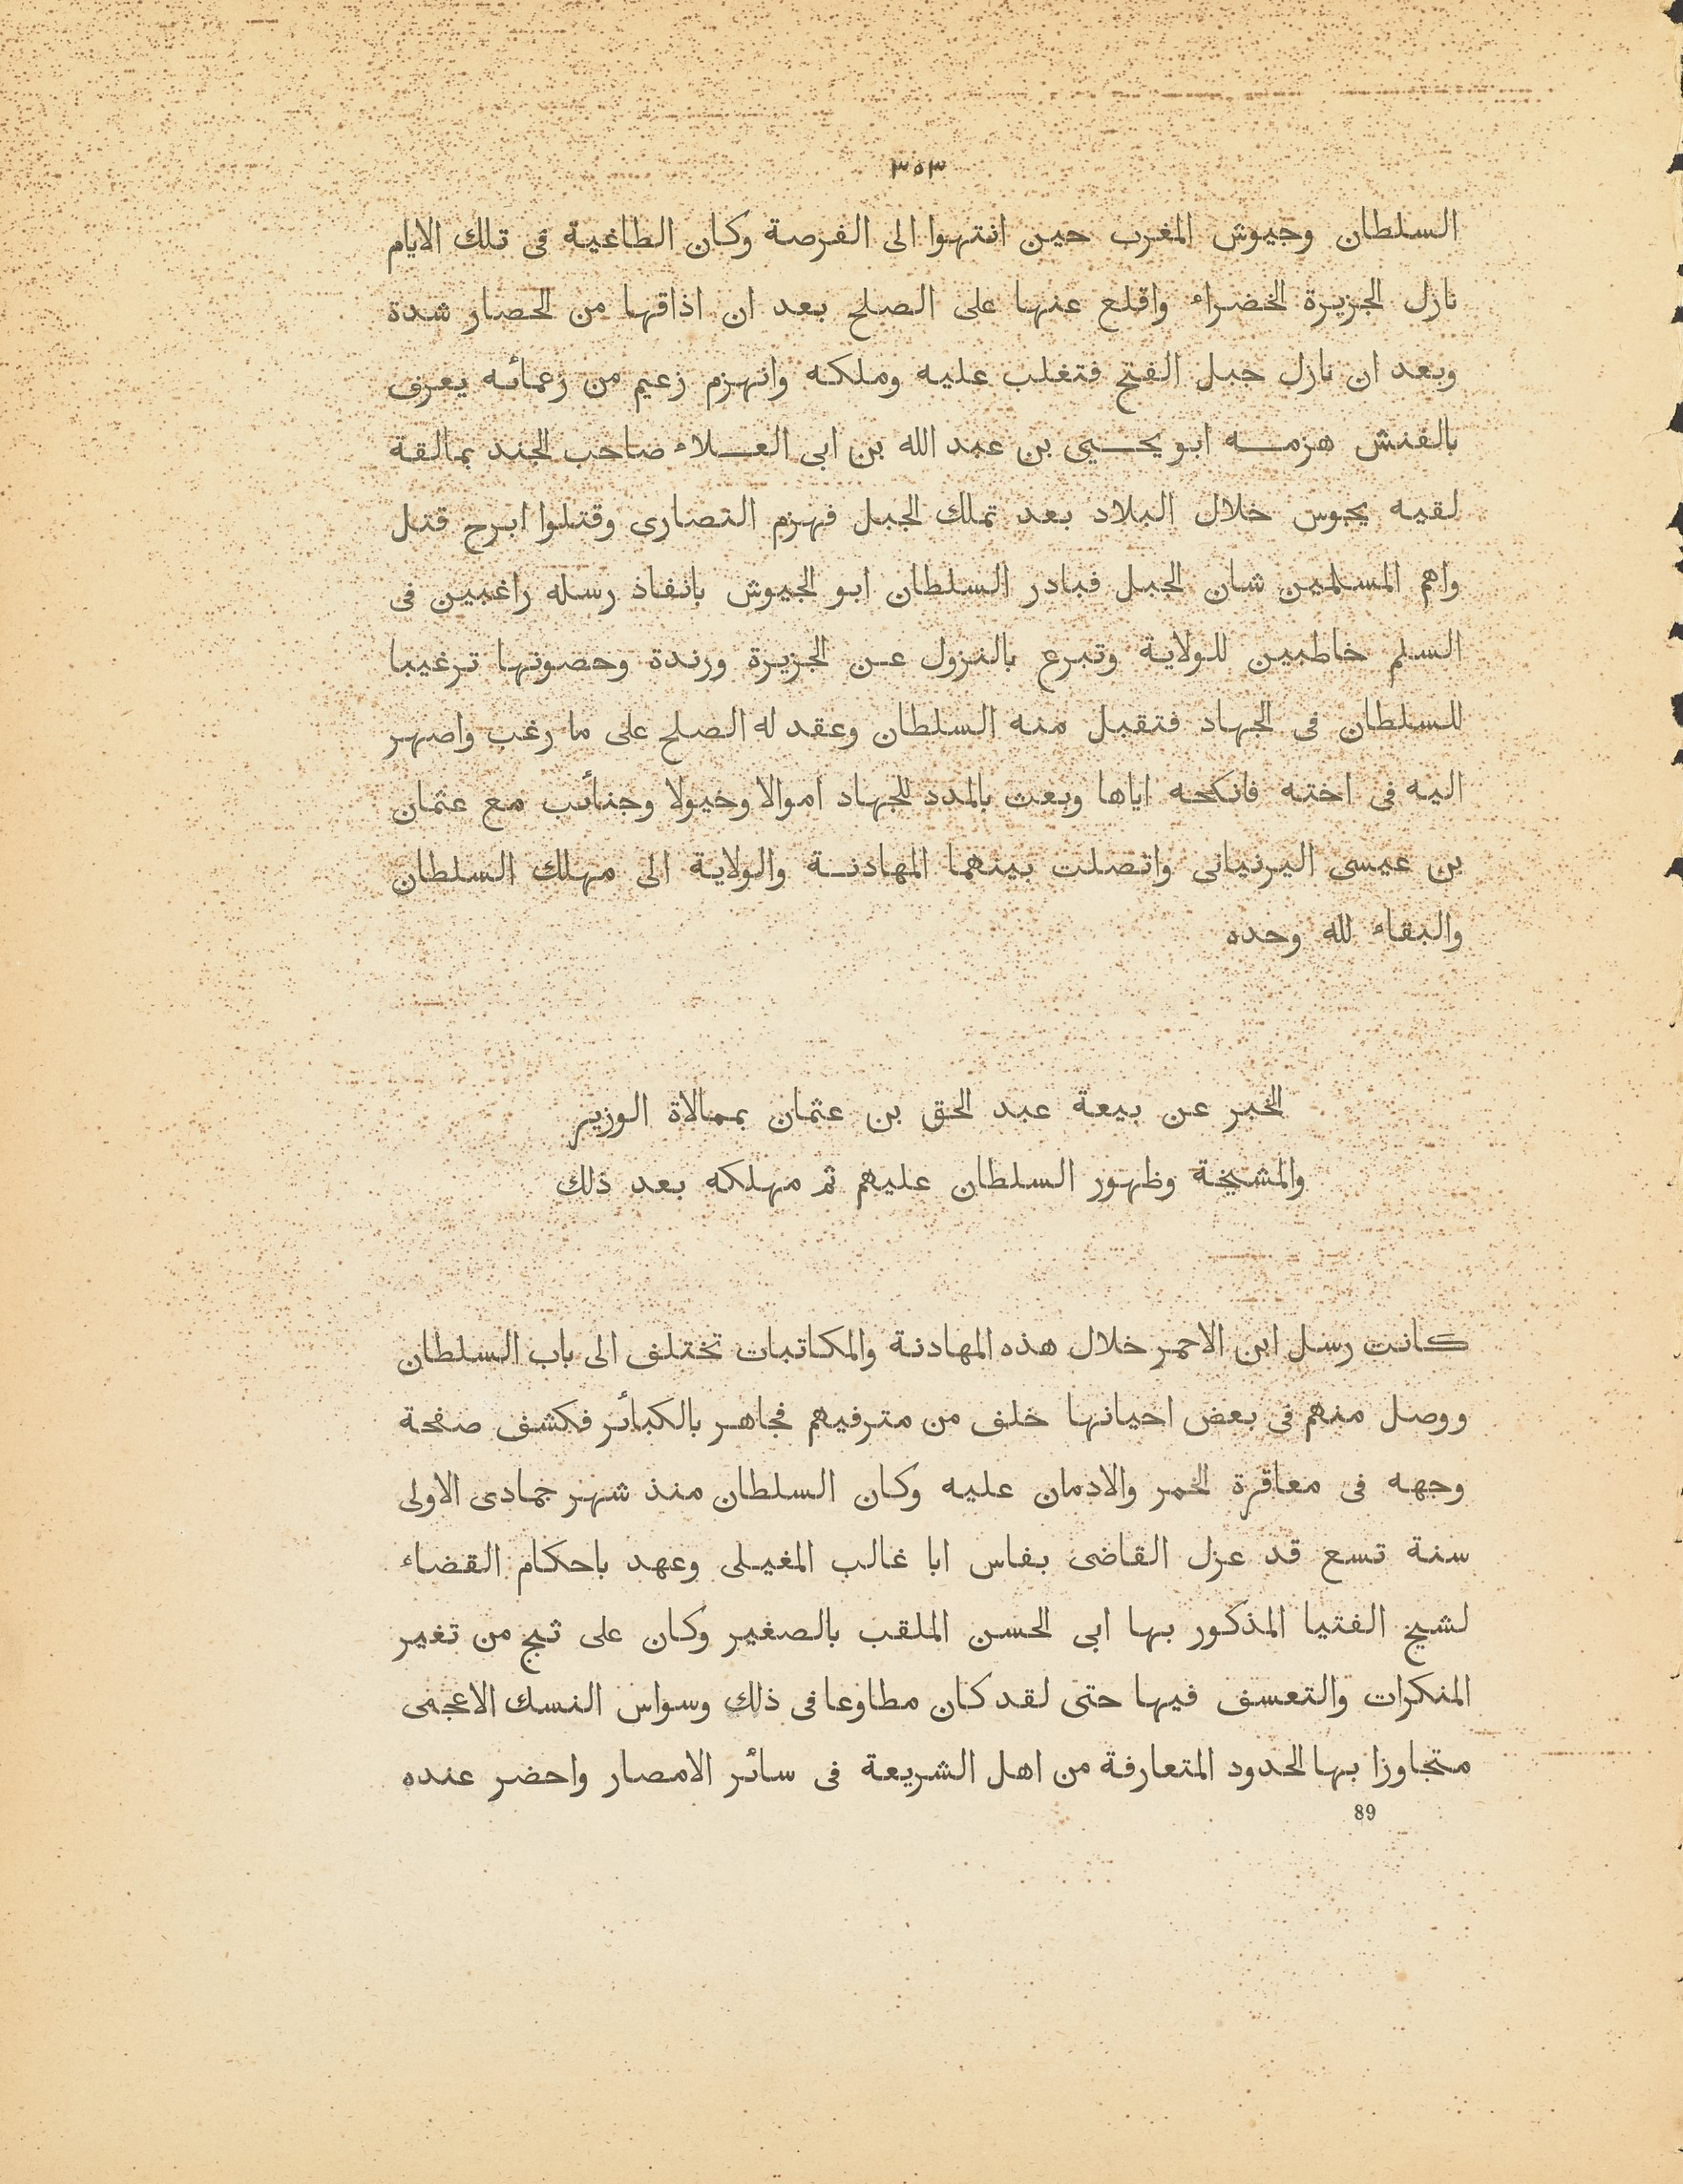 ٣٥٣
السلطان وجيوش المغرب حين انتهوا الى الفرصة وكان الطاغية فى تلك الايام
نازل الجزيرة الخضراء واقلع عنها على الصلح بعد ان اذاقها من الحصار شدة
وبعد ان نازل جبل الفتح فتغلب عليه وملكه وانهزم زعيم من زعمائه يعرف
بالفنش هزمه ابو يحيى بن عبد الله بن ابى العلاء صاحب الجند بمالقة
لقيه يجوس خلال البلاد بعد تملك الجبل فهزم النصارى وقتلوا ابرح قتل
واهم المسلمين شان الجبل فبادر السلطان ابو الجيوش بانفاذ رسله راغبين فى
السلم خاطبين للولاية وتبرع بالنزول عن الجزيرة ورندة وحصونها ترغيبا
للسلطان فى الجهاد فتقبل منه السلطان وعقد له الصلح على ما رغب واصهر
اليه فى اخته فانكحه اياها وبعث بالمدد للجهاد اموالا وخيولا وجنائب مع عثمان
بن عيسى اليرنيانى واتصلت بينهما المهادنة والولاية الى مهلك السلطان
والبقاء لله وحده
الخبر عن بيعة عبد الحق بن عثمان بممالاة الوزير
والمشيخة وظهور السلطان عليهم ثم مهلكه بعد ذلك
كانت رسل ابن الاحمر خلال هذه المهادنة والمكاتبات تختلف الى باب السلطان
ووصل منهم فى بعض احيانها خلف من مترفيهم فجاهر بالكبائر فكشف صفحة
وجهه فى معاقرة الخمر والادمان عليه وكان السلطان منذ شهر جمادى الاولى
سنة تسع قد عزل القاضى بفاس ابا غالب المغيلى وعهد باحكام القضاء
لشيخ الفتيا المذكور بها ابى الحسن الملقب بالصغير وكان على ثبج من تغير
المنكرات والتعسف فيها حتى لقد كان مطاوعا فى ذلك وسواس النسك الاعجمى
متجاوزا بها الحدود المتعارفة من اهل الشريعة فى سائر الامصار واحضر عنده
89